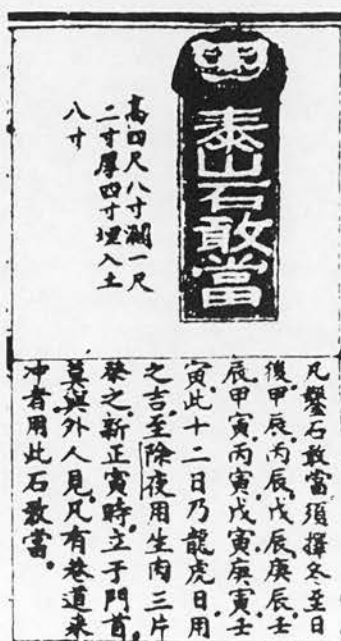 泰山石敢當
高四尺八寸濶一尺
二寸厚四寸埋入土
八寸
凡鑿石敢當須擇冬至日
後甲辰丙辰戊辰庚辰壬
辰甲寅丙寅戊寅庚寅壬
寅此十二日乃龍虎日用
之吉至除夜用生肉三片
祭之新正寅時立于門首
莫與外人見凡有巷道來
冲者用此石敢當